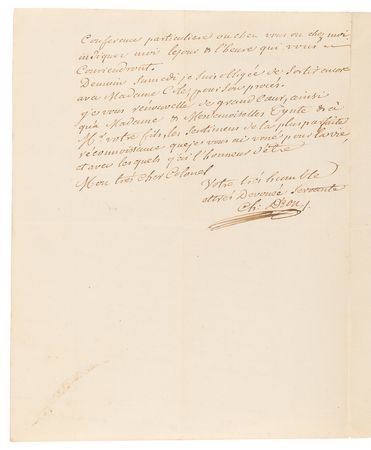 Conference particuliere ou chez vous ou chez moi
indiquer moi le jour & l'heure qui vous
Conviendront.
Demain Samedi je suis obligée de Sortir encore
avec Madame Cole, pour Son procès.
je vous renouvelle de grand Cœur, ainsi
qu'à Madame & Mesdemoiselles & à
Mr. votre fils, les Sentimens de la plus parfaite
réconnoissance que je vous ai voué pour la vie,
et avec lesquels j'ai l'honneur d'être
Mon très Cher Colonel
Votre très humble
et très Devouée Servante
Ch: Déon